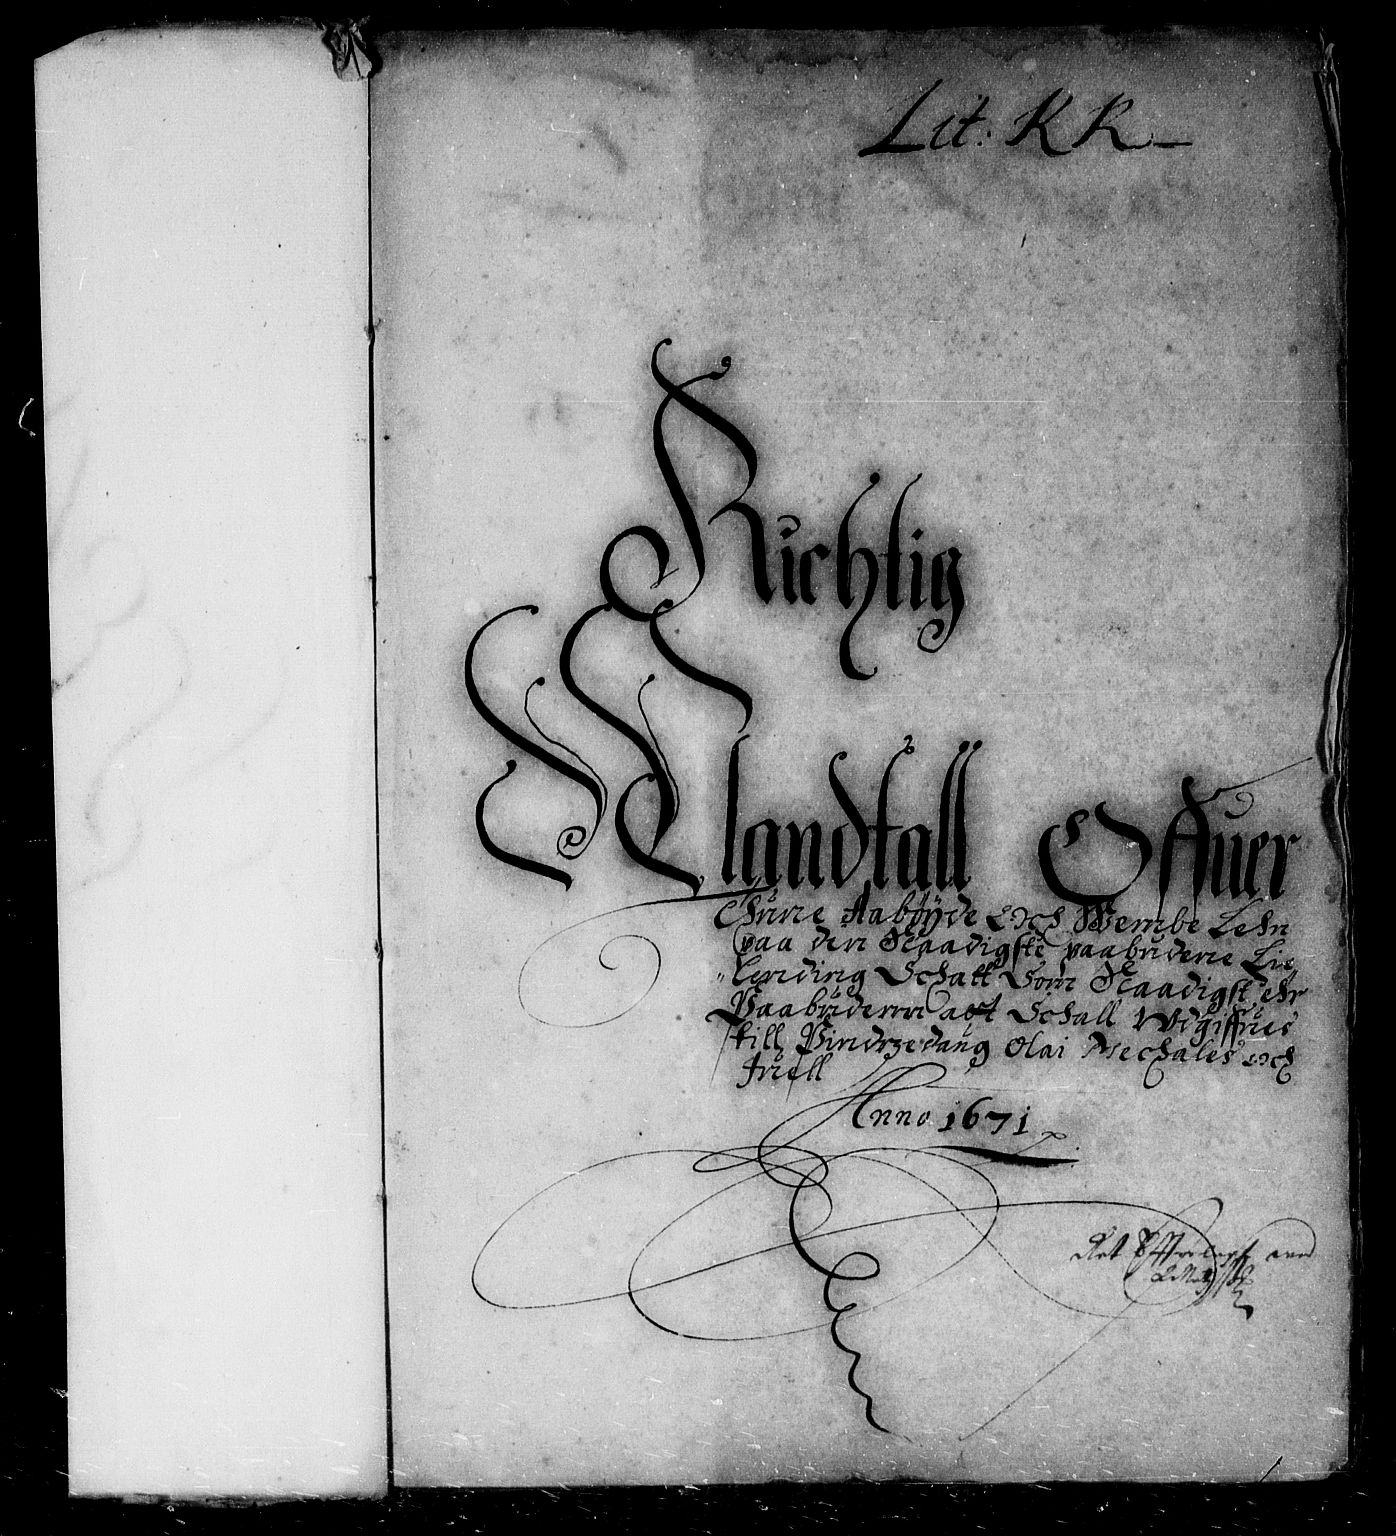 Lit: KK
Richtig
Mandtall Offuer
Tune Aabøyde Och Wembe Lehn
paa den Naadigste paabudene Lie
lending Schatt Som Naadigst ehr
Paabudenn att Schall Wdgiffues
till Pindtzedaug Olai Mechales och
Juell
Anno 1671